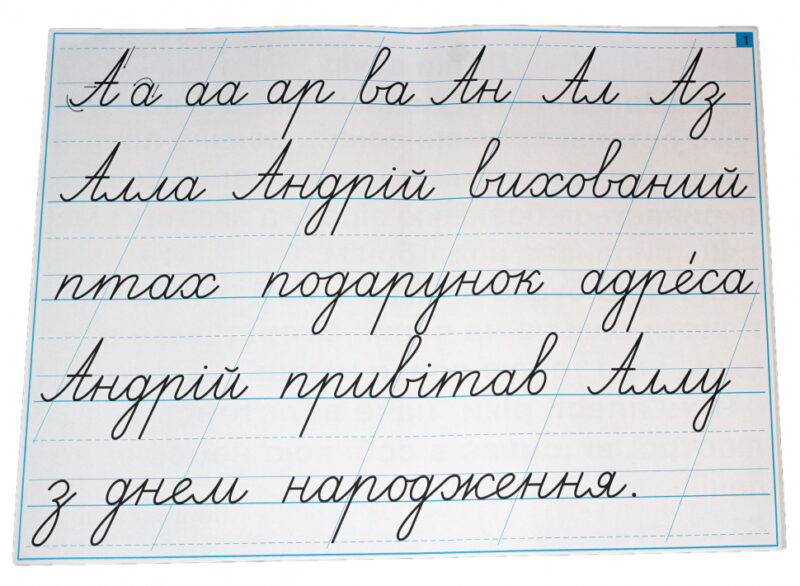 1
Аа аа ар ва Ан Ал Аз
Алла Андрій вихований
птах подарунок адре́са
Андрій привітав Аллу
з днем народження.